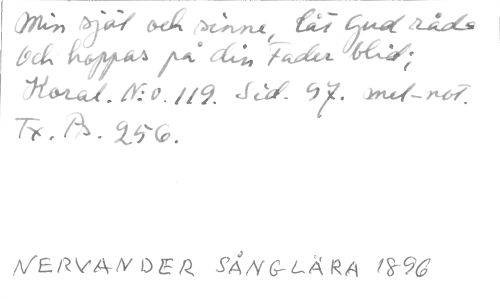 Min själ och sinne, låt Gud råda
Och hoppas på din Fader blid;
Koral. N:o. 119. Sid. 97. mel-not.
Tx. Ps. 256.
NERVANDER SÅNGLÄRA 1896